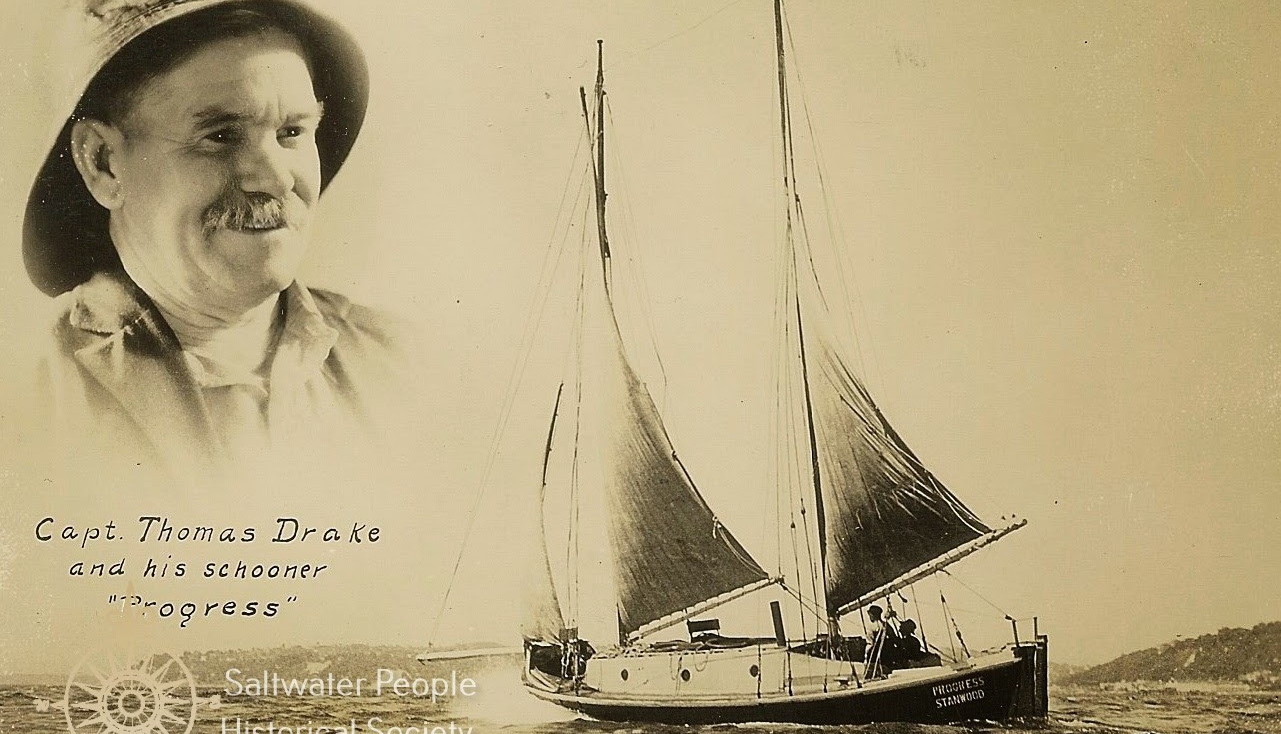 Capt. Thomas Drake
and his schooner
"Progress"
PROGRESS
STANWOOD
W
Saltwater People
Historical Society